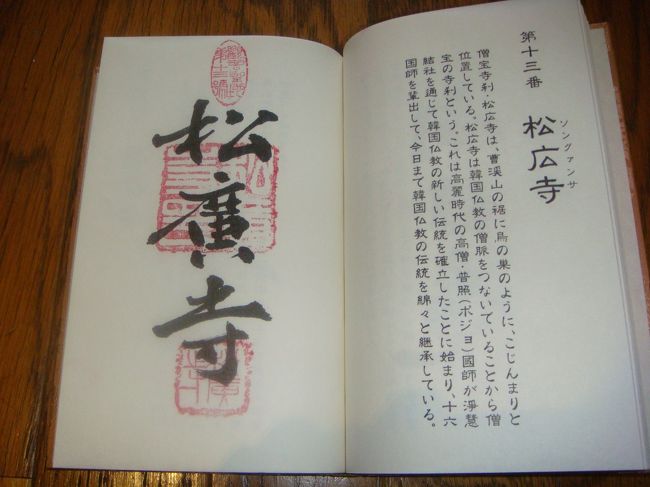 第十三番
松広寺
ソングァンサ
僧宝寺刹・松広寺は、曹渓山の裾に鳥の巣のように、こじんまりと
位置している。松広寺は韓国仏教の僧脈をつないでいることから僧
宝の寺刹という。これは高麗時代の高僧・普照(ポジョ)國師が淨慧
結社を通じて韓国仏教の新しい伝統を確立したことに始まり、十六
国師を輩出して、今日まで韓国仏教の伝統を綿々と継承している。
松廣寺